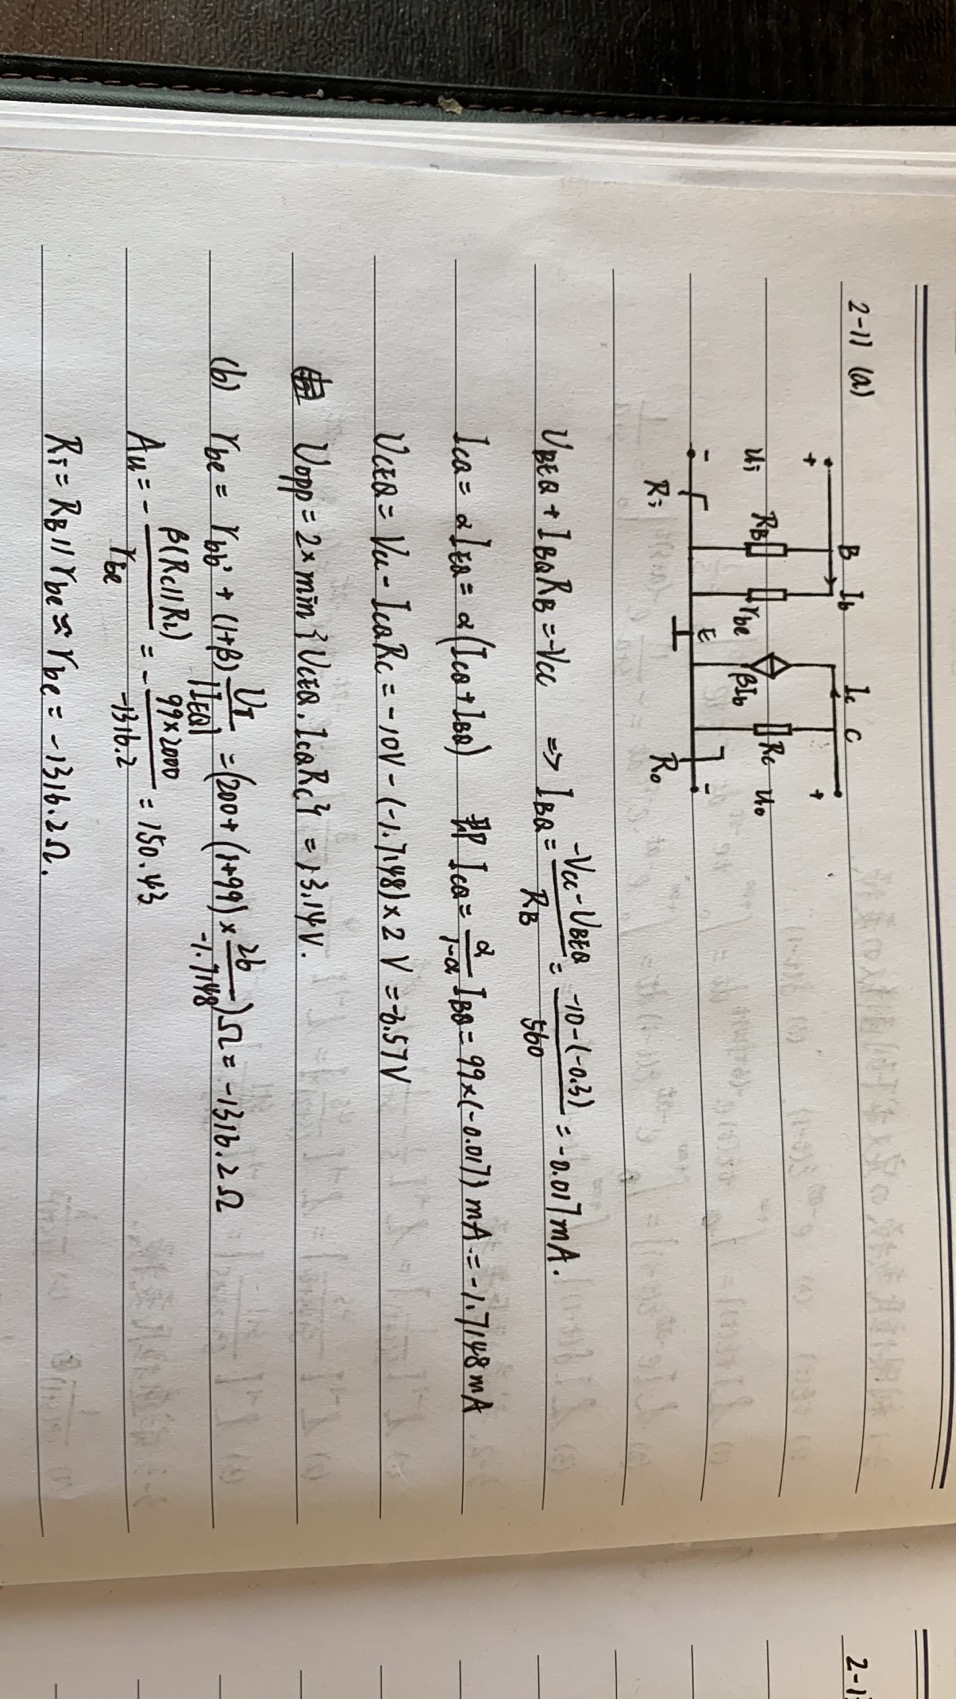 2-11 (a)
+ B Ib Ic C +
ui RB rbe βIb Rc uo
- E -
Ri Ro
UBEQ + IBQRB = -Vcc ⇒ IBQ = (-Vcc - UBEQ)/RB = (-10-(-0.3))/560 = -0.017mA.
ICQ = αIEQ = α(ICQ + IBQ) 即 ICQ = α/(1-α) IBQ = 99×(-0.017) mA = -1.7148mA
UCEQ = Vcc - ICQRc = -10V - (-1.7148)×2 V = -6.57V
Uopp = 2×min{UCEQ, ICQRc} = 13.14V.
(b) rbe = rbb' + (1+β) UT/|IEQ| = (200 + (1+99)× 26/-1.7148)Ω = -1316.2Ω
Au = - β(Rc//RL)/rbe = - 99×2000/-1316.2 = 150.43
Ri = RB//rbe ≈ rbe = -1316.2Ω.